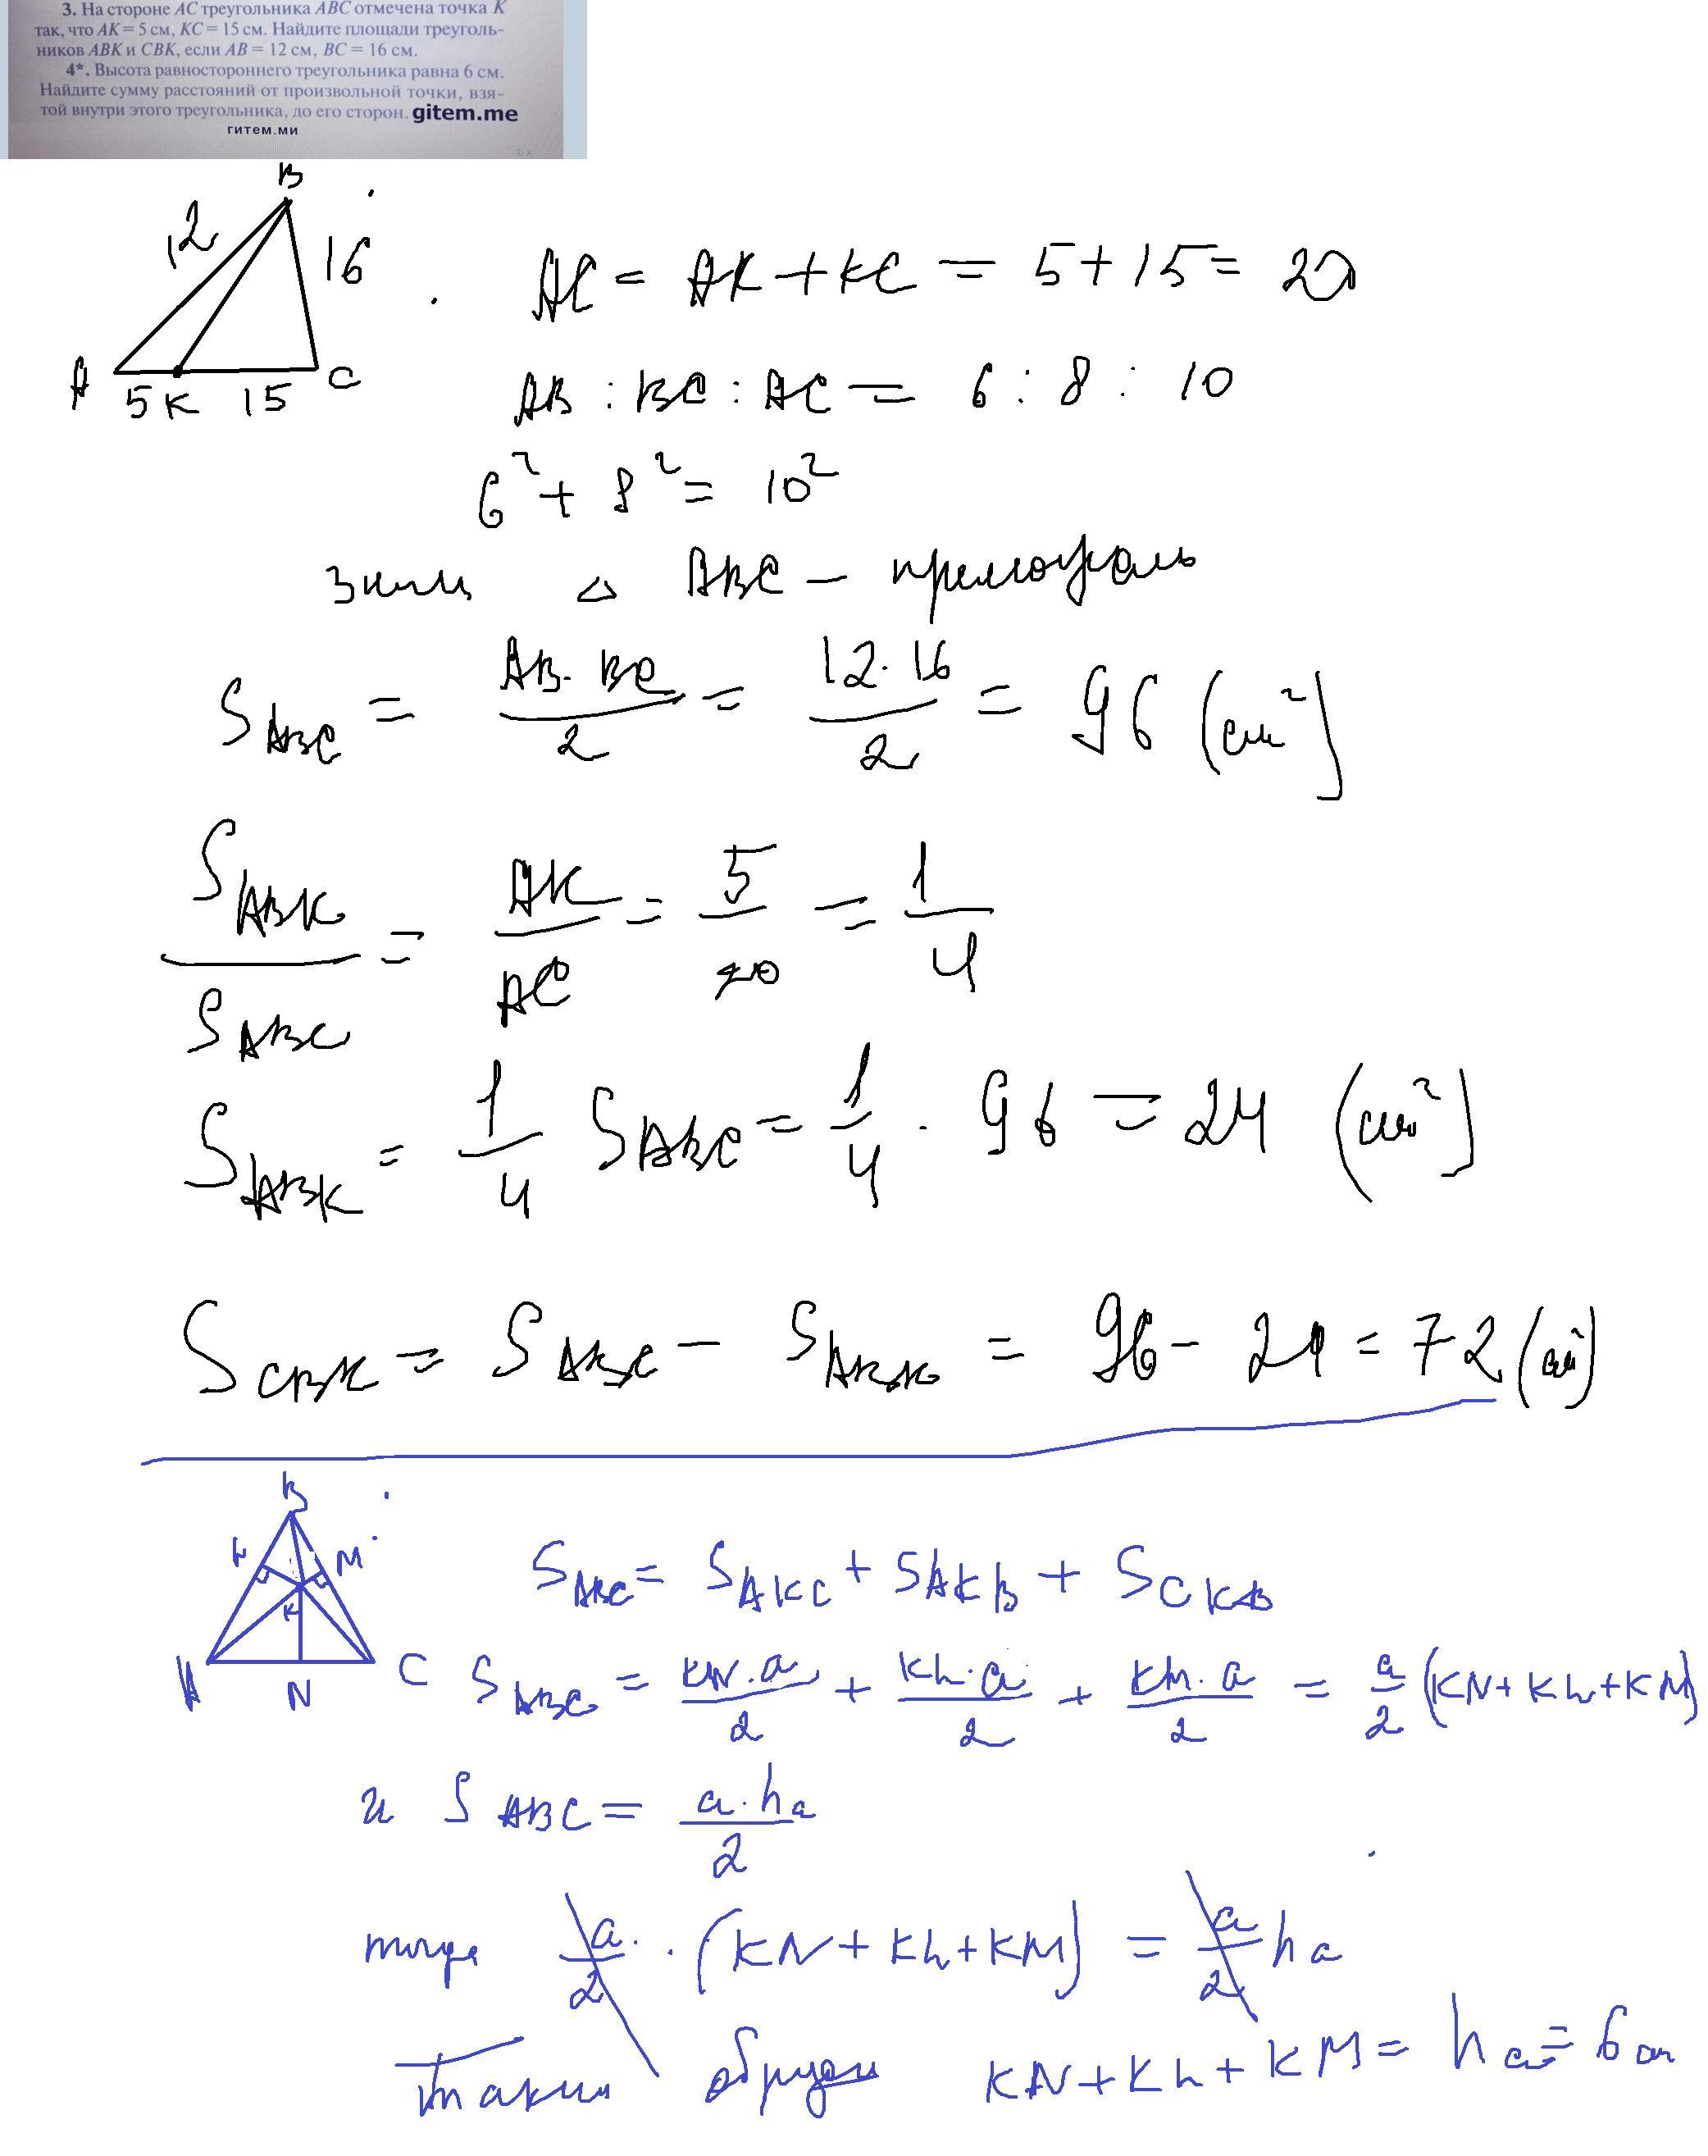 3. На стороне AC треугольника ABC отмечена точка K
так, что AK = 5 см, KC = 15 см. Найдите площади треуголь-
ников ABK и CBK, если AB = 12 см, BC = 16 см.
4*. Высота равностороннего треугольника равна 6 см.
Найдите сумму расстояний от произвольной точки, взя-
той внутри этого треугольника, до его сторон. gitem.me
гитем.ми
B
12
16
A
5 K 15
C
AC = AK + KC = 5 + 15 = 20
AB : BC : AC = 6 : 8 : 10
6² + 8² = 10²
Знач △ ABC – прямоуголь
S ABC = AB · BC / 2 = 12 · 16 / 2 = 96 (см²)
S ABK / S ABC = AK / AC = 5 / 20 = 1 / 4
S ABK = 1/4 S ABC = 1/4 · 96 = 24 (см²)
S CBK = S ABC – S ABK = 96 – 24 = 72 (см²)
B
L
M
K
A
N
C
S ABC = S AKC + S AKB + S CKB
S ABC = KN · a / 2 + KL · a / 2 + KM · a / 2 = a/2 (KN + KL + KM)
и S ABC = a · ha / 2
тогда a/2 · (KN + KL + KM) = a/2 ha
Таким образом KN + KL + KM = ha = 6 см